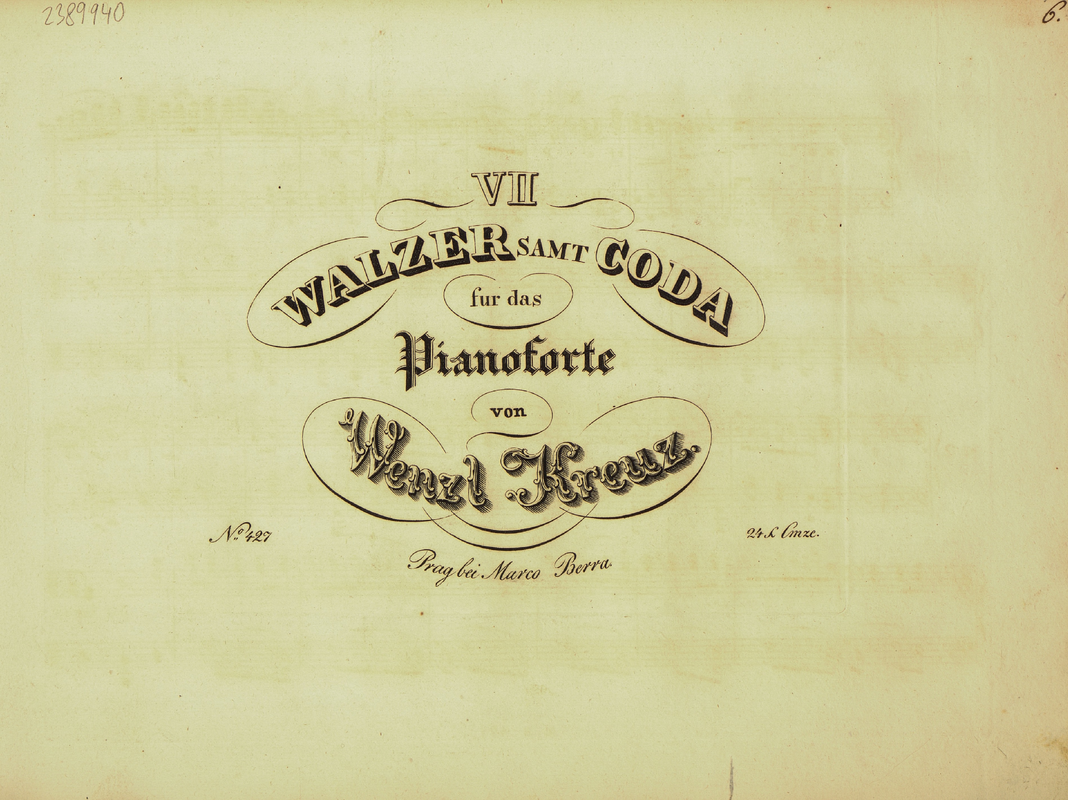 2389940
6.
VII
WALZER SAMT CODA
fur das
Pianoforte
von
Wenzl Kreuz.
No. 427
24 x Cmze.
Prag bei Marco Berra